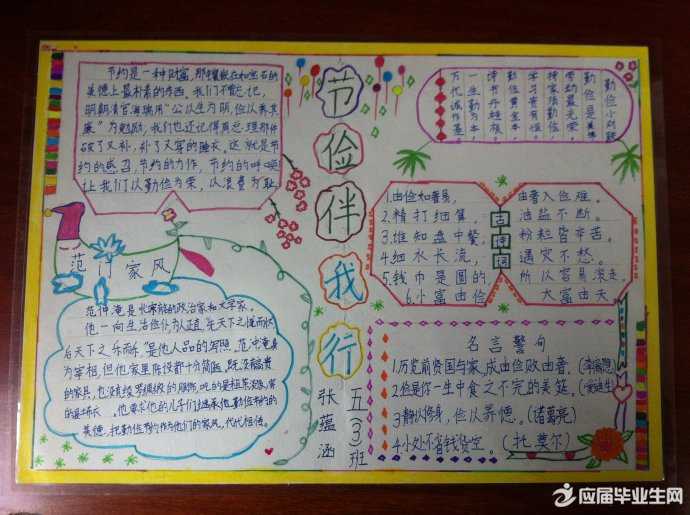 节俭伴我行
五③班
张蕴涵
节约是一种财富,那镶嵌在和宝石的
美德上最朴素的东西。我们不能忘记,
明朝清官海瑞用"公以生为明,俭以养其
廉"为勉励,我们也还记得真总理那件
破了又补,补了又穿的睡衣。这就是节
约的感召,节约的力作,节约的呼唤
让我们以勤俭为荣,以浪费为耻
范门家风
范仲淹是北宋著名的政治家和文学家。
他一向生活俭朴为人正直,先天下之忧而忧
后天下之乐而乐,是他人品的写照。范仲淹身
为宰相,但他家里陈设都十分简陋,既没有高贵
的家具,也没有绫罗绸缎的服饰,吃的是粗茶淡饭,穿
的是土布衣。他要求他的儿子们继承他勤俭节约的
美德,把勤俭节约作为他们的家风,代代相传。
勤俭小对联
勤俭是美德
劳动最光荣。
持家须勤俭,
学习贵有恒。
勤俭黄金本,
诗书丹桂根。
一生勤为本,
万代诚作基
古诗词
1.由俭如善易,由奢入俭难。
2.精打细算,油盐不断。
3.谁知盘中餐,粉粒皆辛苦。
4.细水长流,遇灾不愁。
5.钱币是圆的,所以容易滚走。
6.小富由俭 大富由天
名言警句
1.历览前贤国与家,成由俭败由奢。(李商隐)
2.俭是你一生中食之不完的美筵。(爱迪生)
3.静以修身,俭以养德。(诸葛亮)
4.小处不省钱袋空。(托莫尔)
应届毕业生网